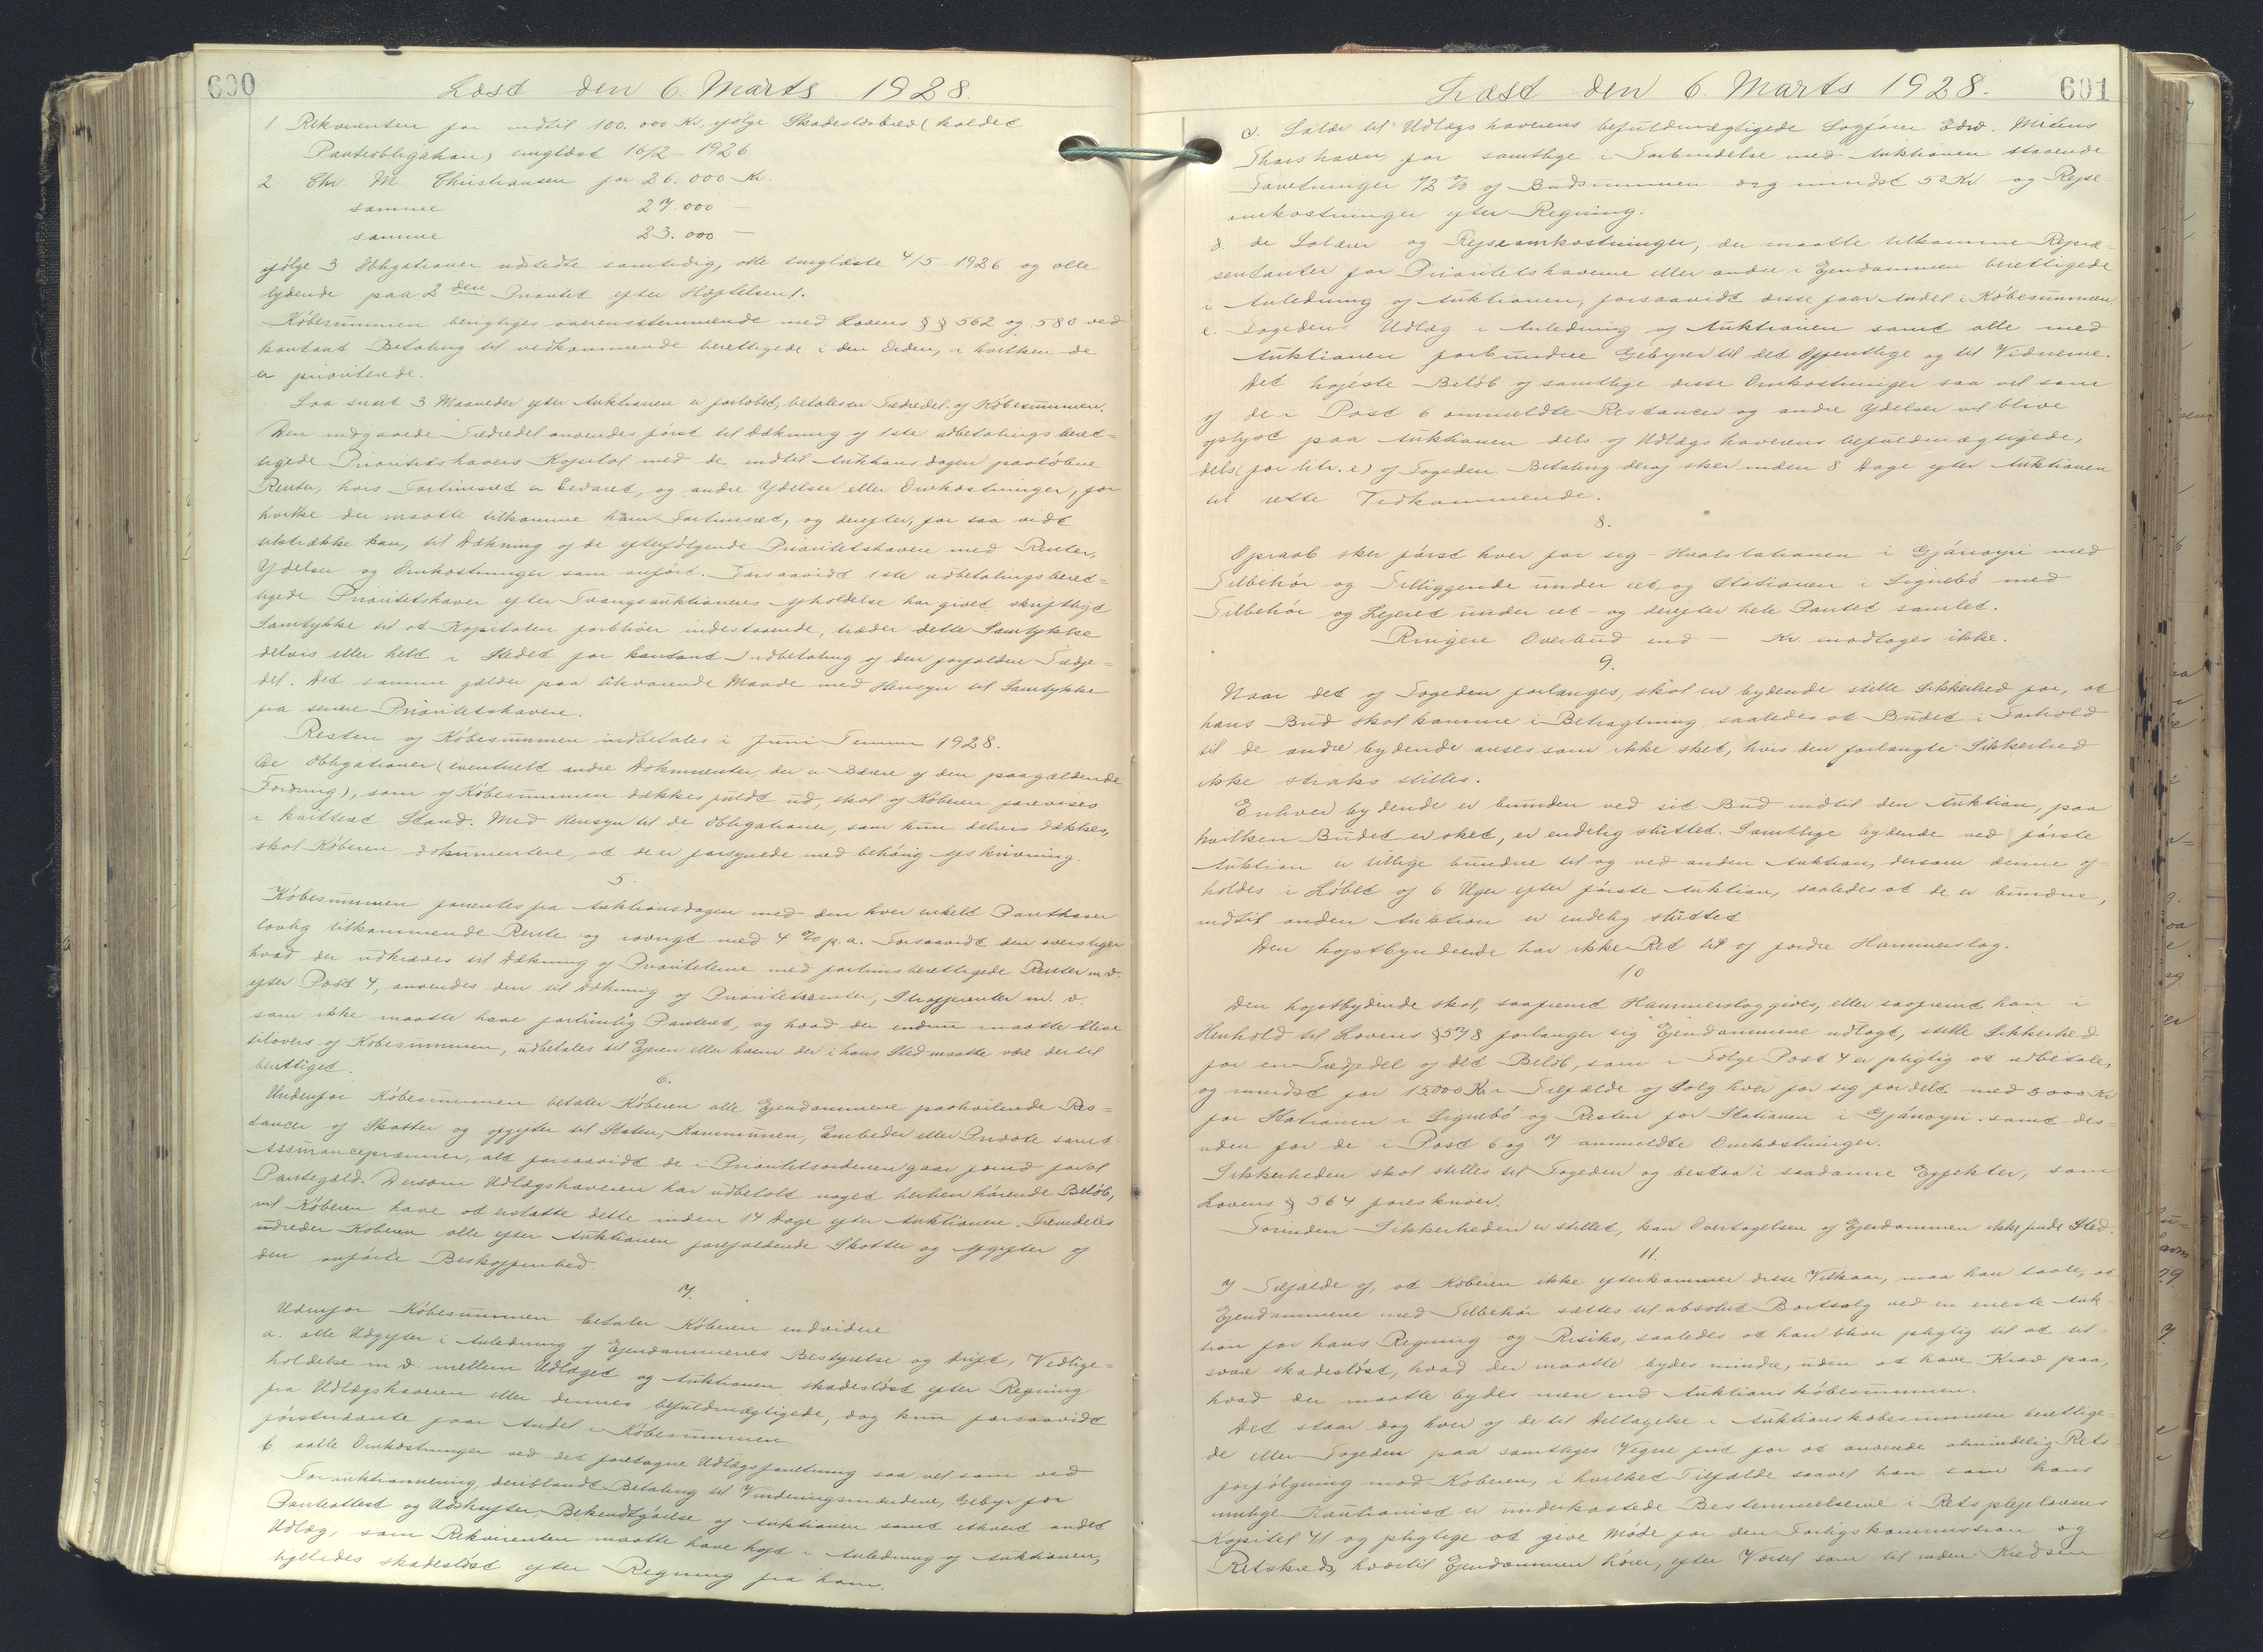 600
Læst den 6. Marts 1928.
1 Rekvirenten for indtil 100.000 Kr. ifølge Skadesløsbrev (kaldet
Panteobligation) tinglæst 16/2 - 1926
2 Chr. M. Christiansen for 26.000 Kr.
samme 27.000 —
samme 23.000 —
ifølge 3 Obligationer udstedte samtidig, alle tinglæste 4/5 - 1926 og alle
lydende paa 2den Prioritet efter Hæftelsen 1.
Købesummen berigtiges overensstemmende med Lovens §§ 562 og 580 ved
kontant Betaling til vedkommende berettigede i den Orden, i hvilken de
er prioriterede.
Saa snart 3 Maaneder efter Auktionen er forløbet, betales en Trediedel af Købesummen.
Den indgaaede Trediedel anvendes først til Dækning af 1ste udbetalingsberet=
tigede Prioritetshavers Kapital med de indtil Auktionsdagen paaløbne
Renter, hvis Fortrinsret er bevaret, og andre Ydelser eller Omkostninger, for
hvilke der maatte tilkomme ham Fortrinsret, og derefter, for saa vidt
tilstrække kan, til Dækning af de efterfølgende Prioritetshavere med Renter,
Ydelser og Omkostninger som anført. Forsaavidt 1ste udbetalingsberet=
tigede Prioritetshaver efter Tvangsauktionens Afholdelse har givet skriftligt
Samtykke til at Kapitalen forbliver indestaaende, træder dette Samtykke
delvis eller helt i Stedet for kontant Indbetaling af den forfaldne Tredje=
del. Det samme gælder paa tilsvarende Maade med Hensyn til Samtykke
fra senere Prioritetshavere.
Resten af Købesummen indbetales i Juni Termin 1928.
De Obligationer (eventuelt andre Dokumenter, der er Bærere af den paagældende
Fordring), som af Købesummen dækkes fuldt ud, skal af Køberen forevises
i kvitteret Stand. Med Hensyn til de Obligationer, som kun delvis dækkes,
skal Køberen dokumentere, at de er forsynede med behørig Afskrivning.
5.
Købesummen forrentes fra Auktionsdagen med den hver enkelt Panthaver
lovlig tilkommende Rente og iøvrigt med 4 % p.a. Forsaavidt den overstiger
hvad der udkræves til Dækning af Prioriteterne med fortrinsberettigede Renter m.v.
efter Post 4, anvendes den til Dækning af Prioritetsrenter, Strafferenter m. v.
som ikke maatte have fortrinlig Panteret, og hvad der endnu maatte blive
tilovers af Købesummen, udbetales til Ejeren eller hvem der i hans Sted maatte være dertil
berettiget.
6.
Udenfor Købesummen betaler Køberen alle Ejendommene paahvilende Res=
tancer af Skatter og Afgifter til Staten, Kommunen, Embeder eller Private samt
Assurancepræmier, alt forsaavidt de i Prioritetsordenen gaar forud for al
Pantegæld. Dersom Udlægshaveren har udbetalt noget herhen hørende Beløb,
vil Køberen have at erstatte dette inden 14 Dage efter Auktionen. Fremdeles
udreder Køberen alle efter Auktionen forefaldende Skatter og Afgifter af
den anførte Beskaffenhed.
7.
Udenfor Købesummen betaler Køberen endvidere
a. alle Udgifter i Anledning af Ejendommenes Bestyrelse og Drift, Vedlige=
holdelse m.v. mellem Udlæget og Auktionen, skadesløst efter Regning
fra Udlægshaveren eller dennes befuldmægtigede, dog kun forsaavidt
førstnævnte faar Andel i Købesummen.
b. alle Omkostninger ved det foretagne Udlægsforretning saa vel som ved
For auktionnering, deriblandt Betaling til Vurderingsmændene, Gebyr for
Panteattest og Udskrifter, Bekendtgørelse af Auktionen samt ethvert andet
Udlæg, som Rekvirenten maatte have haft i Anledning af Auktionen,
ligeledes skadesløst efter Regning fra ham.
601
Læst den 6 Marts 1928.
c. Salær til Udlægshaverens befuldmægtigede Sagfører Edw. Mitens
Thorshavn for samtlige i Forbindelse med Auktionen staaende
Forretninger 1/2 % af Budsummen dog mindst 50 Kr. og Rejse
omkostninger efter Regning.
d. de Salærer og Rejseomkostninger, der maatte tilkomme Repræ-
sentanter for Prioritetshaverne eller andre i Ejendommen berettigede
i Anledning af Auktionen, forsaavidt disse faar Andel i Købesummen.
e. Fogedens Udlæg i Anledning af Auktionen samt alle med
Auktionen forbundne Gebyrer til det Offentlige og til Vidnerne.
Det højeste Beløb af samtlige disse Omkostninger saa vel som
af de i Post 6 ommeldte Restancer og andre Ydelser vil blive
oplyst paa Auktionen dels af Udlægshaverens befuldmægtigede,
dels (for litr. e) af Fogeden. Betaling deraf sker inden 8 Dage efter Auktionen
til rette Vedkommende.
8.
Opraab sker først hver for sig - Hvalstationen i Gjánoyri med
Tilbehør og Tilliggende under eet, og Stationen i Signebø med
Tilbehør og Lejeret under eet - og derefter hele Pantet samlet.
Ringere Overbud end — Kr. modtages ikke.
9.
Naar det af Fogeden forlanges, skal en bydende stille Sikkerhed for, at
hans Bud skal komme i Betragtning saaledes at Budet i Forhold
til de andre bydende anses som ikke sket, hvis den forlangte Sikkerhed
ikke straks stilles.
Enhver bydende er bunden ved sit Bud indtil den Auktion, paa
hvilken Budet er sket, er endelig sluttet. Samtlige bydende ved første
Auktion er tillige bundne til og ved anden Auktion, dersom denne af=
holdes i Løbet af 6 Uger efter første Auktion, saaledes at de er bundne,
indtil anden Auktion er endelig sluttet.
Den højstbyndeende har ikke Ret til af fordre Hammerslag.
10
Den højstbydende skal, saafremt Hammerslag gives, eller saafremt han i
Henhold til Lovens § 578 forlanger sig Ejendommene udlagt, stille Sikkerhed
for en Tredjedel af det Beløb, som i Følge Post 4 er pligtig at udbetale,
og mindst for 15.000 Kr. i Tilfælde af Salg hver for sig fordelt med 5000 Kr
for Stationen i Signebø og Resten for Stationen i Gjánoyri samt des=
uden for de i Post 6 og 7 anmeldte Omkostninger.
Sikkerheden skal stilles til Fogeden og bestaa i saadanne Effekter, som
Lovens § 564 foreskriver.
Forinden Sikkerheden er stillet, kan Overtagelsen af Ejendommen ikke finde Sted.
11.
I Tilfælde af, at Køberen ikke efterkommer disse Vilkaar, maa han taale, at
Ejendommene med Tilbehør sættes til absolut Bortsalg ved en eneste Auk
tion for hans Regning og Risiko, saaledes at han bliver pligtig til at til-
svare skadesløst, hvad der maatte bydes mindre, uden at have Krav paa,
hvad der maatte bydes mere end Auktionskøbesummen.
Det staar dog hver af de til Deltagelse i Auktionskøbesummen berettige-
de eller Fogeden paa samtliges Vegne frit for at anvende almindelig Rets-
forfølgning mod Køberen, i hvilket Tilfælde saavel han som hans
mulige Kautionist er underkastede Bestemmelserne i Retsplejelovens
Kapitel 41 og pligtige at give Møde for den Forligskommission og
Retskreds, hvortil Ejendommen hører, efter Varsel som til inden Kredsen